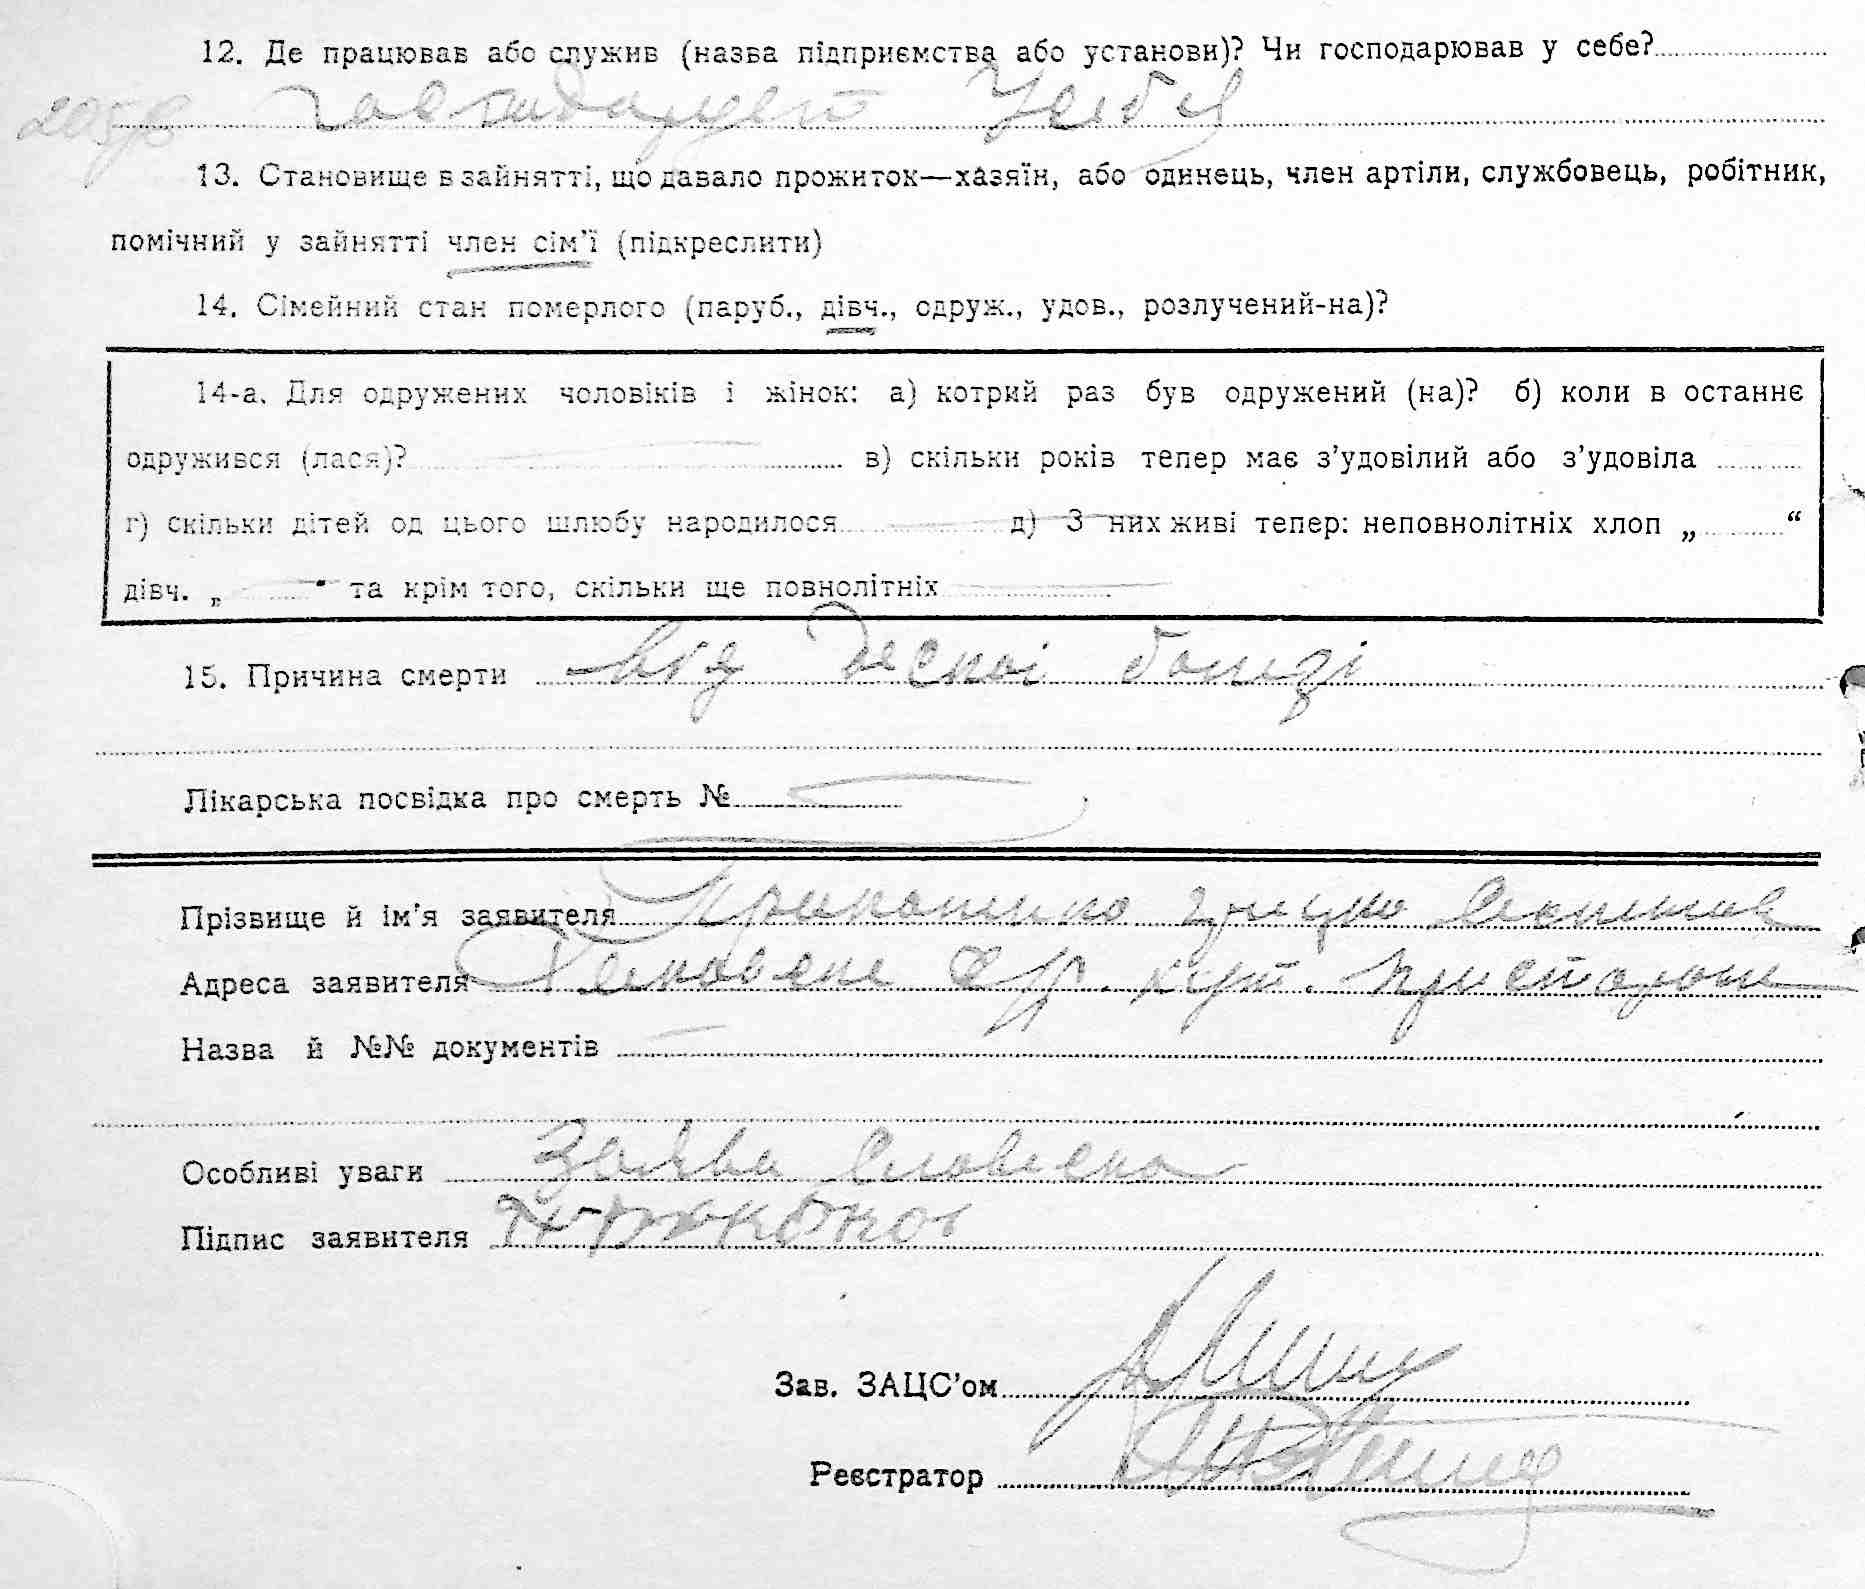 12. Де працював або служив (назва підприємства або установи)? Чи господарював у себе?
У себе
13. Становище в зайнятті, що давало прожиток—хазяїн, або одинець, член артіли, службовець, робітник,
помічний у зайнятті член сім'ї (підкреслити)
14. Сімейний стан померлого (паруб., дівч., одруж., удов., розлучений-на)?
14-а. Для одружених чоловіків і жінок: а) котрий раз був одружений (на)? б) коли в останнє
одружився (лася)? в) скільки років тепер має з'удовілий або з'удовіла
г) скільки дітей од цього шлюбу народилося д) З них живі тепер: неповнолітніх хлоп „ “
дівч. „ “ та крім того, скільки ще повнолітніх
15. Причина смерти від
Лікарська посвідка про смерть №
Прізвище й ім'я заявителя
Адреса заявителя хут.
Назва й №№ документів
Особливі уваги Заява словесна
Підпис заявителя
Зав. ЗАЦС'ом
Реєстратор